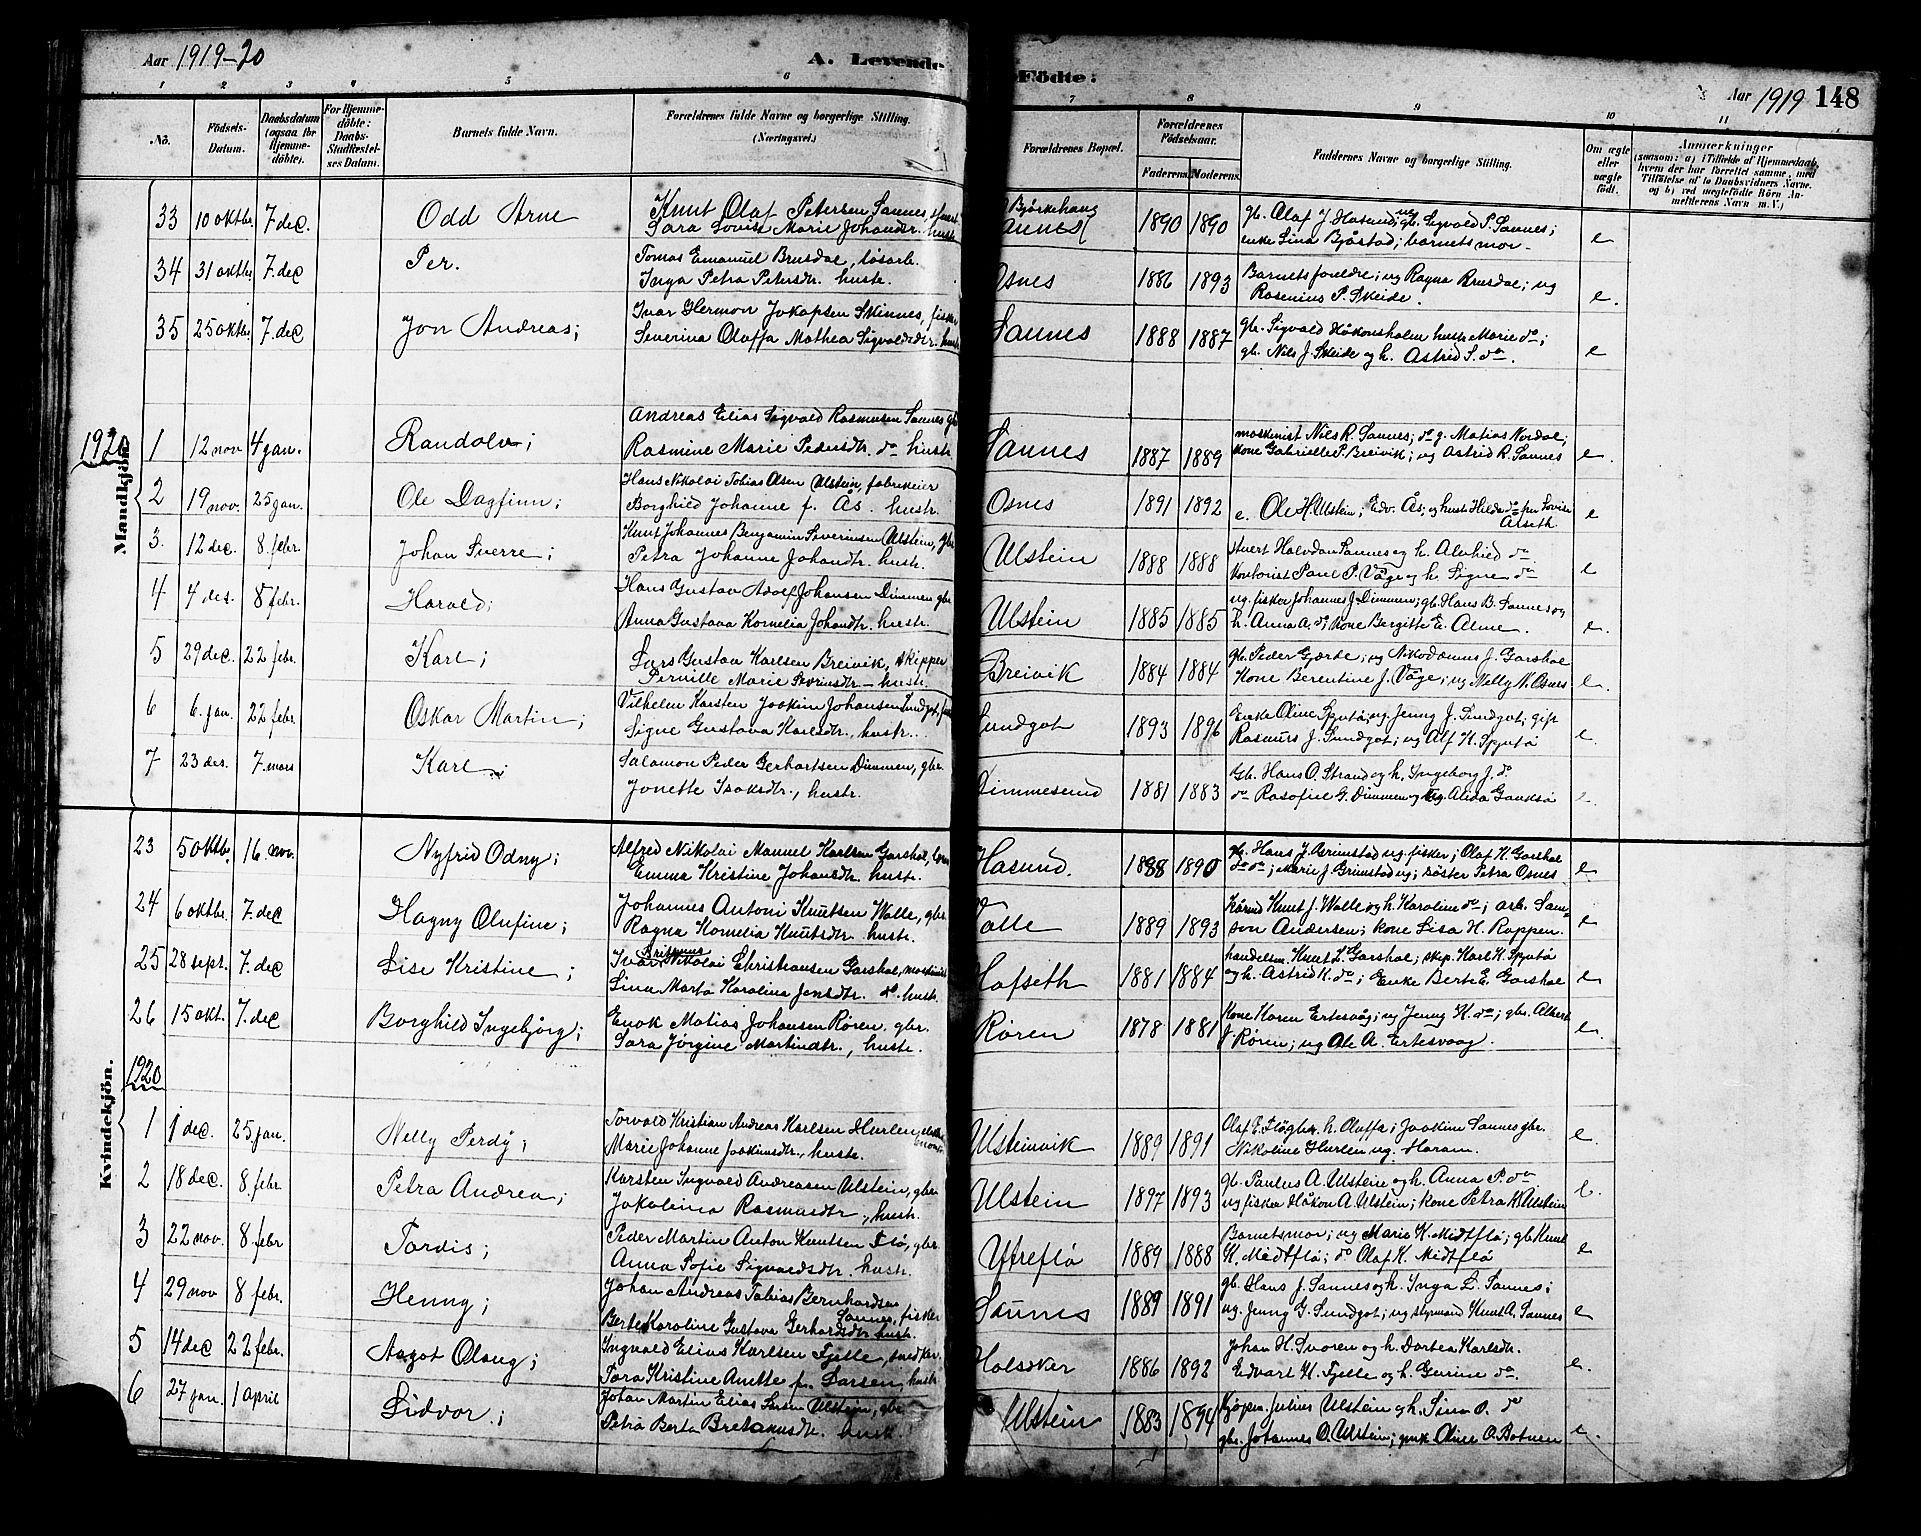 Aar 1919-20
A. Levende
Fødte:
Aar 1919 148
1 2 3 4 5 6 7 8 9 10 11
No.
Födsels-Datum.
Daabsdatum (ogsaa for Hjemme-döbte).
For Hjemme-döbte: Daabs-Stadfæstel-ses Datum.
Barnets fulde Navn.
Forældrenes fulde Navne og borgerlige Stilling.
(Næringsvei.)
Forældrenes Bopæl.
Forældrenes Födselsaar.
Faderens. Moderens.
Faddernes Navne og borgerlige Stilling.
Om ægte eller uægte födt.
Anmærkninger
(saasom: a) i Tilfælde af Hjemmedaab, hvem der har forrettet samme, med Tilföielse af to Daabsvidners Navne. og b) ved uægtefödte Börn An-melderens Navn m. V.)
33 10 oktbr. 7 dec. Odd Arne Knut Olaf Petersen Sannes,
Sara Lovise Marie Johansdr. hustr. Bjørkehaug Sannes 1890 1890 gb. Olaf J Hasund; ug gb. Sigvald P. Sannes;
enke Lina Bjåstad; barnets mor - e
34 31 oktbr. 7. dec Per. Tomas Emanuel Brusdal, løsarb.
Inga Petra Petersdtr. hustr. Osnes 1886 1893 Barnets foreldre; ug Ragna Brusdal; ug
Rosenius P. Skeide. e.
35 25 oktbr. 7. dec Jon Andreas; Ivar Hermon Jakopsen Skinnes, fisker
Severina Oluffa Mathea Sigvaldsdtr. hustr. Sannes 1888 1887 gbr. Sigvald Håkonsholm hustr Marie do;
gb. Nils J. Skeide og h. Astrid S. do. e
1920
Mandkjön.
1 12 nov 4 jan. Randolv; Andreas Elias Sigvald Rasmusen Sannes gb
Rasmine Marie Pedersdtr. do hustr Sannes 1887 1889 maskinist Nils R. Sannes; do g. Matias Nordal;
kone Gabrielle P. Breivik; ug Astrid R. Sannes e.
2 19 nov. 25 jan. Ole Dagfinn; Hans Nikolai Tobias Olsen Ulstein, fabrikeier
Borghild Johanne f. Ås. hustr. Osnes 1891 1892 e. Ole H. Ulstein; Edv. Ås; og hustr Hilda do fru Lovise
Alseth. e
3. 12 dec. 8. febr. Johan Sverre; Knut Johannes Benjamin Severinsen Ulstein, gbr
Petra Johanne Johandtr. hustr. Ulstein 1888 1888 Stuert Halvdan Sannes og h. Alvhild do
Kontorist Paul P. Våge og h. Signe do e
4 4 des. 8 febr. Harald; Hans Gustav Adolf Johansen Dimmen gbr
Anna Gustava Kornelia Johandtr. hustr. Ulstein 1885 1885 ug. fisker Johannes J. Dimmen; gb. Hans B. Sannes og
h. Anna A. do; kone Bergitte E. Alme. e.
5 29 dec. 22 febr. Karl; Lars Gustav Karlsen Breivik, skipper
Pernille Marie Severinsdtr - hustr. Breivik 1884 1884 gb. Peder Gjerde; ug Nikodemus J. Garshol
Kone Berentine J. Våge; ug Nelly N. Osnes e.
6 6. jan. 22 febr. Oskar Martin; Vilhelm Karsten Joakim Johansen Sundgot,
Signe Gustava Karlsdtr., hustr. Sundgot 1893 1896 Enke Oline Spjutø; ug. Jenny J. Sundgot; gift
Rasmus J. Sundgot; ug Alf H. Spjutø e.
7 23 des. 7. mars Karl; Salamon Peder Gerhartsen Dimmen, gbr.
Jonette Isaksdtr., hustr. Dimmesund 1881 1883 Gb. Hans O. Strand og h. Ingeborg J. do.
do Rasofiel G. Dimmen og ug. Alida Gauksø e.
Kvindekjön.
23 5 oktbr. 16. nov. Nyfrid Odny; Alfred Nikolai Manuel Karlsen Garshol,
Emma Kristine Johansdtr. hustr. Hasund. 1888 1890 gb. Hans J. Grimstad ug. fisker; Olaf K. Garshol
do do; Marie J Grimstad ug; søster Petra Osnes e
24 6 oktbr. 7. dec Hagny Olufine; Johannes Antoni Knutsen Walle, gbr.
Ragna Kornelia Knutsdtr. hustr. Valle 1889 1893 Kårmd Knut J. Walle og h. Karoline do; arb. Sam-
son Andersen; kone Lisa H. Roppen. e
25 28 sept. 7. dec Lise Kristine; Ivar Nikolai Christiansen Garshol, maskinist
Lina Marta Karolina Jensdtr. do. hustr. Hofseth 1881 1884 handelsm. Knut L. Garshol; skip. Karl K. Spjutø
og h. Astrid K. do; Enke Berte E. Garshol e
26 15 okt. 7. dec Borghild Ingebjörg; Enok Matias Johansen Røren. gbr.
Sara Jörgine Martindtr., hustr. Røren 1878 1881 Kone Karen Ertesvåg; ug Jenny K. do; gbr. Albert
J. Røren; ug Ole A. Ertesvaag. e.
1920
1 1 dec. 25. jan. Nelly Perdy; Torvald Kristian Andreas Karlsen Hurlen,
Marie Johanne Joakimsdtr., hustr. Ulsteinvik 1889 1891 Olaf P. Fløgbr. h. Oluffa; Joakim Sannes gbr.
Nikoline Hurlen ug. Haram. e.
2 18 dec. 8. febr Petra Andrea; Karsten Ingvald Andreasen Ulstein, gbr
Jakobina Rasmusdtr., hustr. Ulstein 1897 1893 gb. Paulus A. Ulstein og h. Anna P. do
ug fisker Håkon A. Ulstein; kone Petra K. Ulstein e.
3 22 nov. 8. febr Tordis; Peder Martin Anton Knutsen Flø, gbr.
Anna Sofie Sigvaldsdtr. hustr. Ytreflø 1889 1888 Barnets mor; ug Marie K. Midtflø; gb. Knut
K. Midtflø; do Olaf K. Midtflø e
4 29 nov 8 febr. Henny; Johan Andreas Tobias Bernhardsen
Sannes, fisker
Berte Karoline Gustava Gerhardsdtr hustr. Sannes 1889 1891 gb. Hans J. Sannes og h. Inga L. Sannes;
ug. Jenny G. Sundgot; ug styrmand Knut A. Sannes e
5 14 dec 22 febr. Aagot Olaug; Ingvald Elias Karlsen Fjelle, snedker
Tora Kristine Anette f. Larsen, hustr Holseker 1886 1892 Johan H. Svoren og h. Dortea Karlsdtr.
Edvart H. Fjelle og h. Gurine do. e.
6 27 jan. 1 april Lidvor; Johan Martin Elias Larsen Ulstein, gbr
Petra Berta Bretanusdtr. hustr. Ulstein 1883 1894 kjøpm. Julius Ulstein og h. Lina O. do
gbr. Johannes O. Ulstein; pike Oline O. Botnen e.